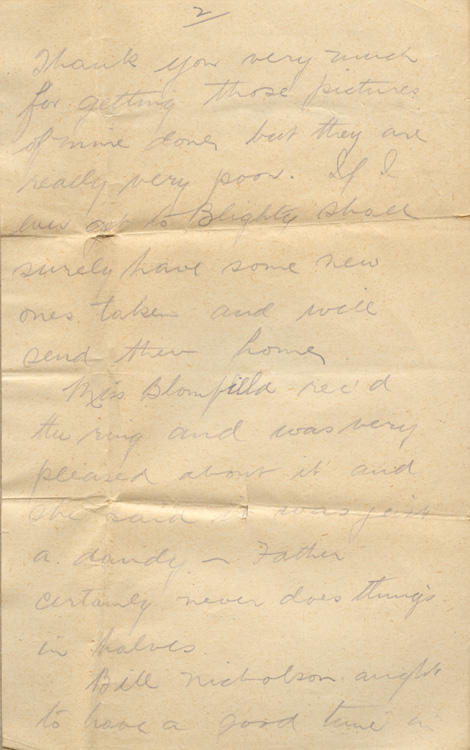 2
Thank you very much
for getting those pictures
of mine done, but they are
really very poor. If I
ever get to Blighty shall
surely have some new
ones taken and will
send them home,
Miss Blomfield rec'd
the ring and was very
pleased about it and
she said it was just
a dandy — Father
certainly never does things
in halves.
Bill Nicholson aught
to have a good time